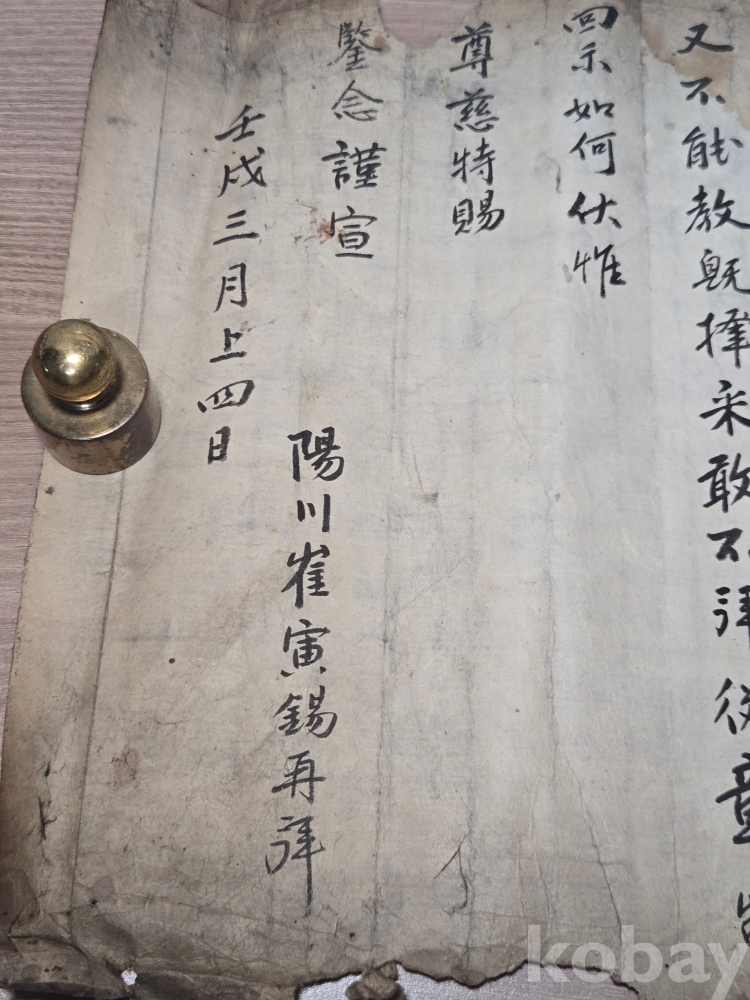 又不能教旣擇采敢不拜從章
回示如何伏惟
尊慈特賜
鑒念謹宣
壬戌三月上四日
陽川崔寅錫再拜
kobay